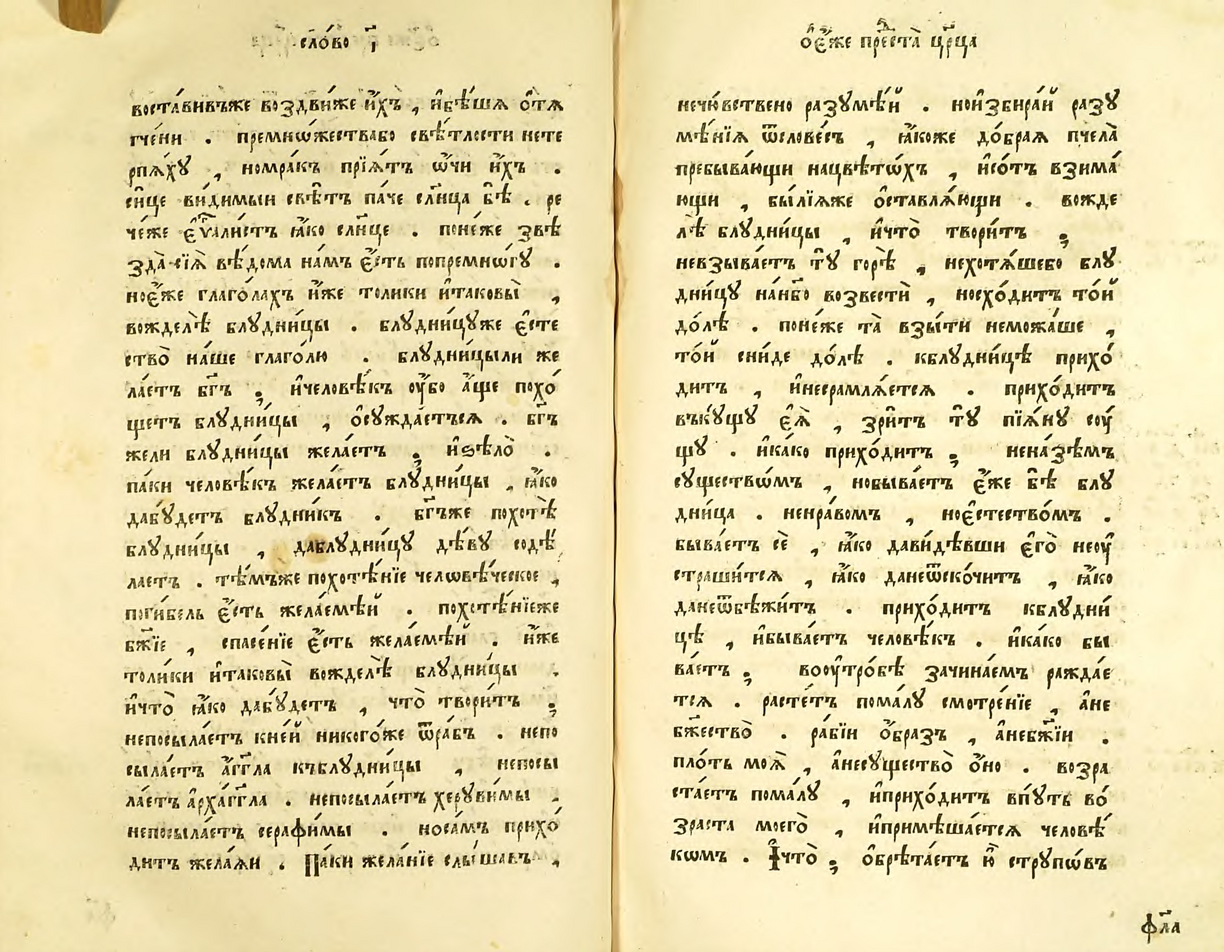 сло́во г҃
воста́вивъже воздви́же и҆́хъ , и҆бѣ́шꙗ ѻ҆тѧ
гче́ни . премно́жествабо свѣ́тлости нете
рпѧ́хꙋ , номра́къ прїѧ́тъ ѡ҆́чи и҆́хъ .
си́це ви́димыи свѣ́тъ па́че сл҃нца бѣ̀ . ре
че́же є҆ѵⷢ҇али́стъ ꙗ҆́ко сл҃нце . поне́же звѣ
зда̀ сїѧ̀ вѣ́дома на́мъ є҆́сть попремно́гꙋ .
ное҆́же глаго́лахъ и҆́же толи́ки и҆таковы̀ ,
вожделѣ̀ блꙋдни́цы . блꙋдни́цꙋже є҆сте
ство̀ на́ше глаго́лю . блꙋдни́цыли же
ла́етъ бг҃ъ ; и҆человѣ́къ ᲂу҆́бо а҆́ще похо́
щетъ блꙋдни́цы , ѻ҆сꙋжда́етъсѧ . бг҃ъ
жели блꙋдни́цы жела́етъ ; и҆ѕѣлѡ̀ .
па́ки человѣ́къ жела́етъ блꙋдни́цы , ꙗ҆́ко
дабꙋ́детъ блꙋдни́къ . бг҃ъже похотѣ̀
блꙋдни́цы , даблꙋдни́цꙋ дѣ́вꙋ содѣ́
лаетъ . тѣ́мъже похотѣ́нїе человѣ́ческое ,
поги́бель є҆́сть жела́емѣй . похотѣ́нїеже
бж҃їе , спасе́нїе є҆́сть жела́емѣй . и҆́же
толи́ки и҆таковы̀ вожделѣ̀ блꙋдни́цы .
и҆что̀ ꙗ҆́ко дабꙋ́детъ , что̀ твори́тъ ;
непосыла́етъ кне́й никого́же ѿра́бъ . непо
сыла́етъ а҆́гг҃ла къблꙋдни́цы , непосы
ла́етъ а҆рха́гг҃ла . непосыла́етъ херꙋви́мы .
непосыла́етъ серафи́мы . носа́мъ прихо́
дитъ жела́ѧи . Па́ки жела́нїе слы́шавъ ,
ѻ҆е҆́же прⷭ҇та̀ цр҃ца
нечю́вствено разꙋмѣ́й . ноизбира́й разꙋ
мѣ́нїѧ ѿслове́съ , ꙗ҆́коже до́браѧ пчела̀
пребыва́ющи нацвѣ́тѡхъ , и҆со́тъ взима́
ющи , бы́лїѧже ѻ҆ставлѧ́ющи . вожде
лѣ̀ блꙋдни́цы , и҆что̀ твори́тъ ;
невзыва́етъ тꙋ̀ горѣ̀ , нехотѧ́шебо блꙋ
дни́цꙋ нан҃бо возвестѝ , носхо́дитъ то́й
до́лѣ . поне́же та̀ взы́ти неможа́ше ,
то́й сни́де до́лѣ . кблꙋдни́цѣ прихо́
дитъ , и҆несрамлѧ́етсѧ . прихо́дитъ
въкꙋ́щꙋ є҆ѧ̀ , зри́тъ тꙋ̀ пїѧ́нꙋ сᲂу́
щꙋ . и҆ка́ко прихо́дитъ ; ненаꙁѣ́мъ
сꙋществѡ́мъ , нобыва́етъ є҆́же бѣ̀ блꙋ
дни́ца . ненра́вомъ , ное҆стество́мъ .
быва́етъ сѐ , ꙗ҆́ко дави́дѣвши є҆го̀ неᲂу҆
страши́тсѧ , ꙗ҆́ко данеѿско́читъ , ꙗ҆́ко
данеѿбѣжи́тъ . прихо́дитъ кблꙋдни́
цѣ , и҆быва́етъ человѣ́къ . и҆ка́ко бы
ва́етъ ; воᲂу҆тро́бѣ зачина́емъ ражда́е
тсѧ . расте́тъ пома́лꙋ смотре́нїе , а҆не
бж҃ество̀ . ра́бїи ѻ҆́бразъ , а҆небж҃їи .
пло́ть моѧ̀ , а҆несꙋщество̀ ѻ҆́но . возра
ста́етъ пома́лꙋ , и҆прихо́дитъ впꙋ́ть во́
зраста моего̀ , и҆примѣша́етсѧ человѣ́
кѡмъ . И҆что̀ ; ѻ҆брѣта́етъ ю҆̀ стрꙋпѡ́въ
фл҃а